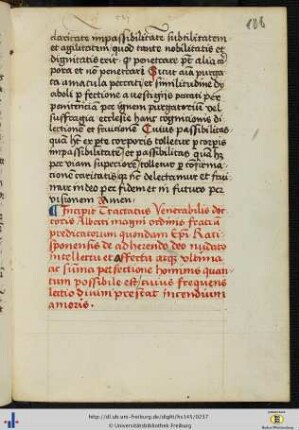 108
claritate impassibilitate subtilitatem
et agilitatem quod tante nobilitatis et
dignitatis erit qͥ penetrare pͭ alia cor
pora et nō penetrari Sicut aīa purga
ta a macula peccati et similitudine dy
aboli
perfectione a vestigijs peccati per
penitenciam per ignem purgatorium vel
suffragia ecclesie hanc cognicionis di
lectione et fruicione Cuius passibilitas
ex pte corporis tolletur p corpis
impassibilitatē et passibilitas quā hz
per viam superiorē tolletur p confirma
tionē caritatis qͣ nē delectamur et frui
mur in deo per fidem et in futuro per
visionem Amen
Incipit Tractatus Venerabilis doc
toris Alberti magni ordinis fratrū
predicatorum quondam Epī Rati
sponensis de adherendo deo nudato
intellectu et affectu atqꝫ vltima
ac sūma perfectione hominis quan
tum possibile est cuius frequens
lectio diuini prestat incendium
amoris
http://dl.ub.uni-freiburg.de/diglit/hs345/0237
© Universitätsbibliothek Freiburg